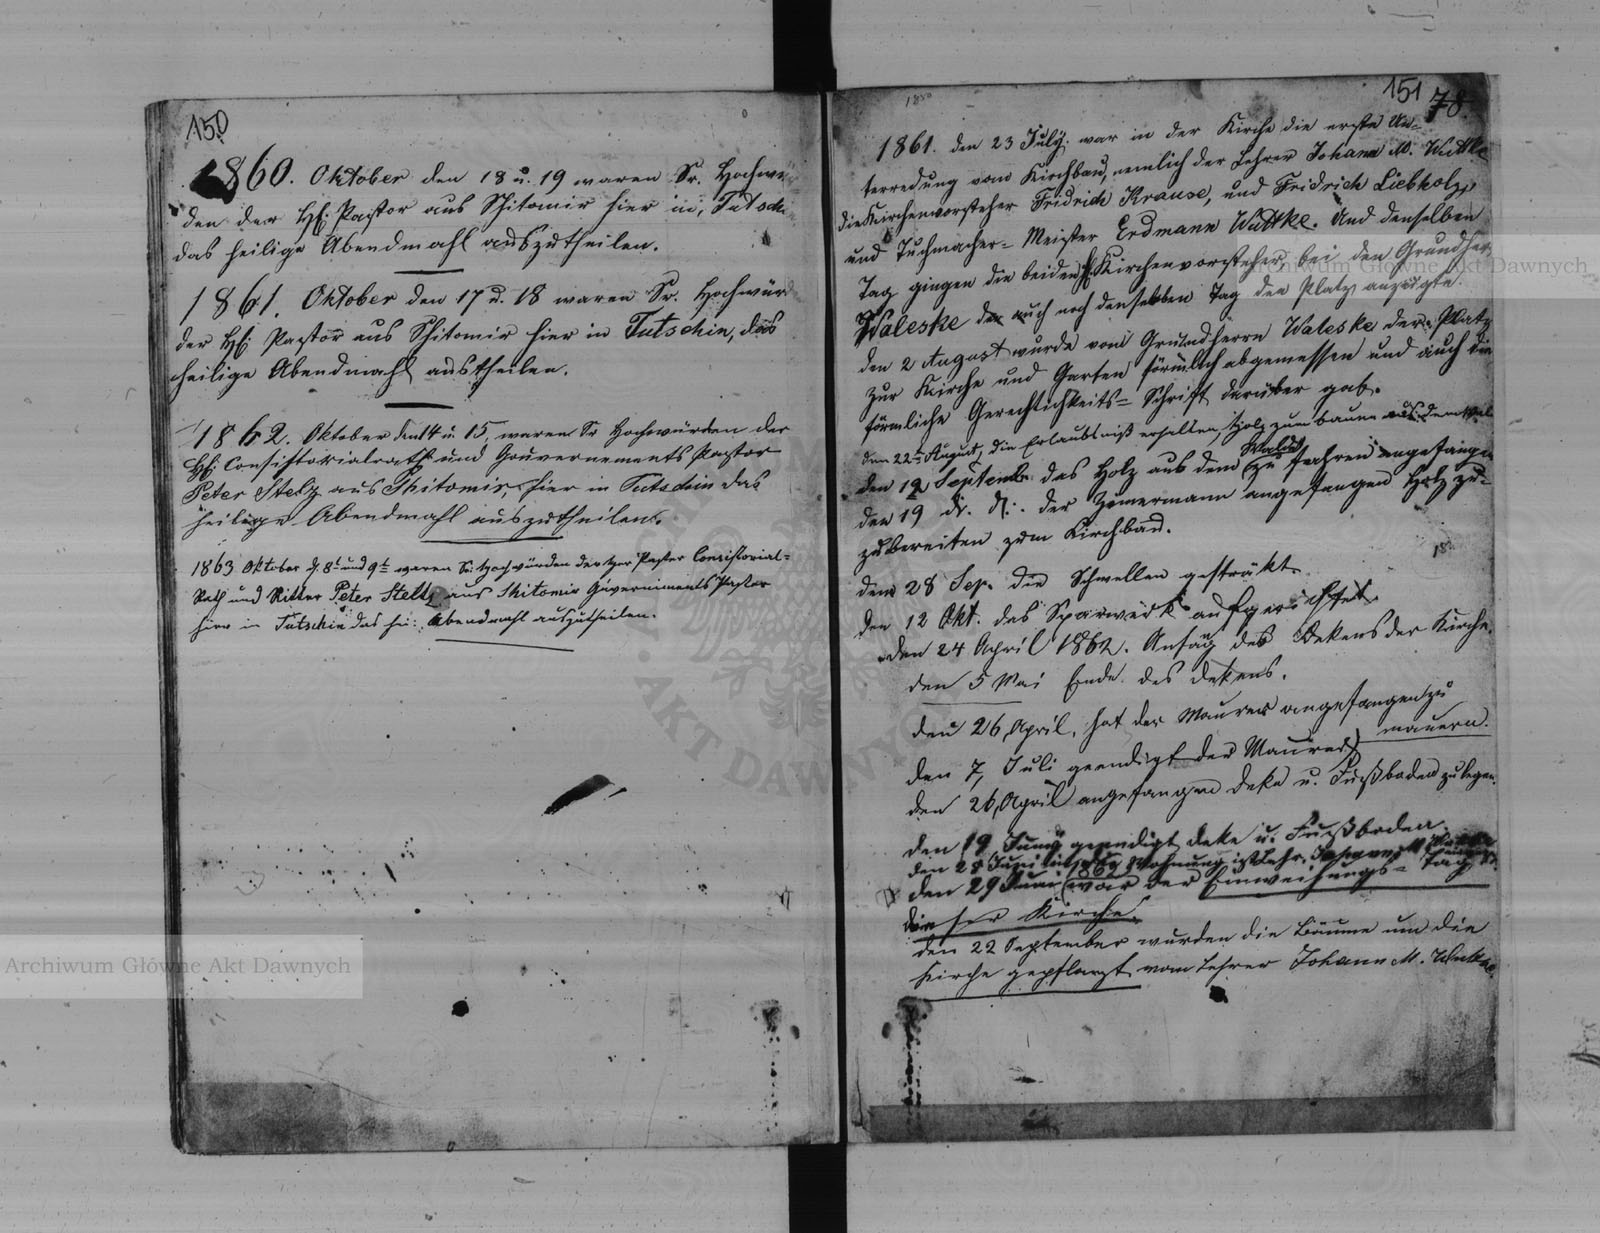 150
1860. Oktober den 18 u. 19 waren Sr. Hochwür
den der H: Pastor aus Shitomir hier in, Tutschin
das heilige Abendmahl auszutheilen.
1861. Oktober den 17 u. 18 waren Sr. Hochwürd
der H: Pastor aus Shitomir hier in Tutschin, das
heilige Abendmahl austheilen.
1862. Oktober den 14 u 15, waren Sr Hochwürden der
H: Consistorialrath und Gouvernements Pastor
Peter Stelz aus Shitomir, hier in Tutschin das
heilige Abendmahl auszutheilen.
1863 Oktober d. 8t und 9t waren Sr: Hochwürden der Herr Pastor Consistorial=
Rath und Ritter Peter Steltz aus Shitomir Guvernements Pastor
hier in Tutschin das hei: Abendmahl auszutheilen.
1850
151
78.
1861. den 23 July. war in der Kirche die erste Un=
terredung vom Kirchbau, nemlich der Lehrer Johann M. Wuttke
die Kirchenvorsteher Fridrich Krause, und Fridrich Liebholz,
und Tuchmacher= Meister Erdmann Wuttke. Und denselben
Tag gingen die beiden H Kirchenvorsteher bei den Grundher,
Waleske der auch noch denselben Tag den Platz anzeigte.
den 2 August wurde vom Grundherrn Waleske der Platz
zur Kirche und Garten förmlich abgemessen und auch die
förmliche Gerechtlichkeits= Schrift darüber gab.
den 22ten August, die Erlaubniß erhalten, Holz zum bauen aus dem Wal
den 12 Septemb. das Holz aus dem Walde zu fahren angefangen
den 19 d. d.. der Zimermann angefangen Holz zu=
zubereiten zum Kirchbau.
den 28 Sep. die Schwellen gesträkt.
den 12 Okt. das Sparwerk aufgerichtet.
den 24 April 1862. Anfang des Dekens der Kirche.
den 5 Mai Ende des Dekens.
den 26 April, hat der Maurer angefangen zu
mauern.
den 7, Juli geendigt der Maurer
den 26, April angefangen Deke u. Fußboden zu legen.
den 19 Juny geendigt deke u. Fußboden.
den 28 Juni in Wohnung ist Lehr. Johann M
den 29 Juni 1862 war der Einweihungs= Tag
dieser Kirche.
den 22 September wurden die Bäume um die
Kirche gepflanzt vom Lehrer Johann M. Wuttke.
Archiwum Główne Akt Dawnych
Archiwum Główne Akt Dawnych
AKT DAWNYCH